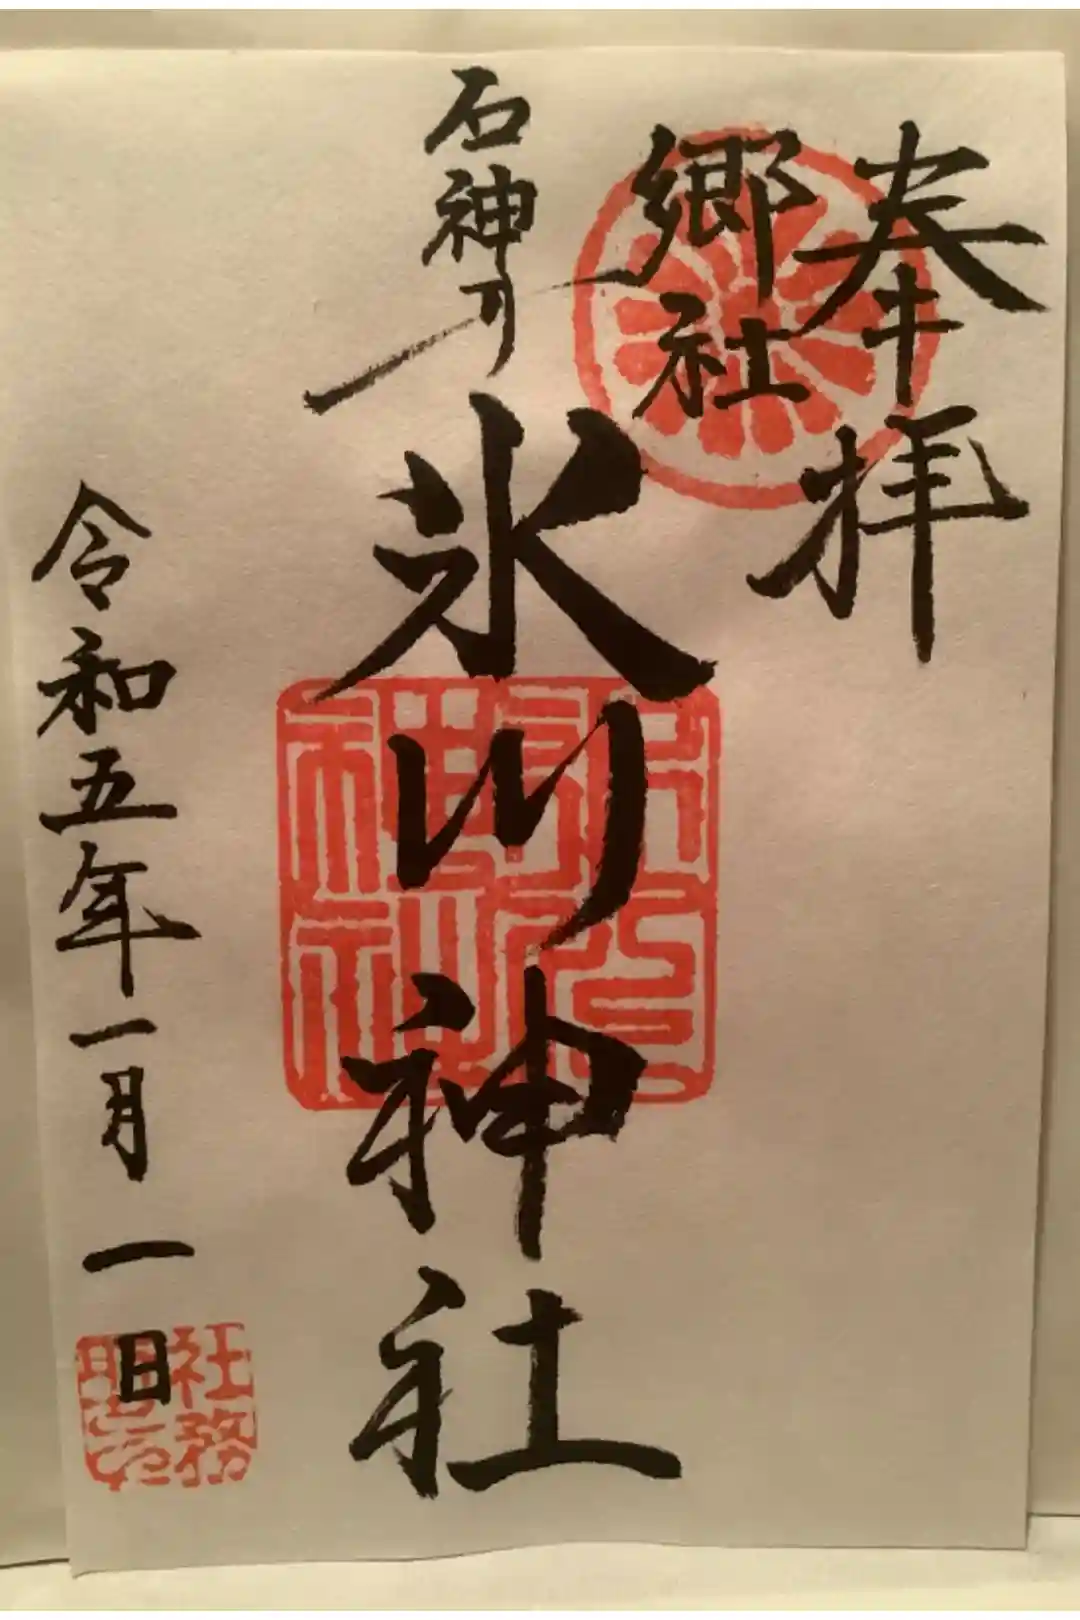 奉拝
郷社
石神
氷川神社
令和五年一月一日
氷川神社
社務